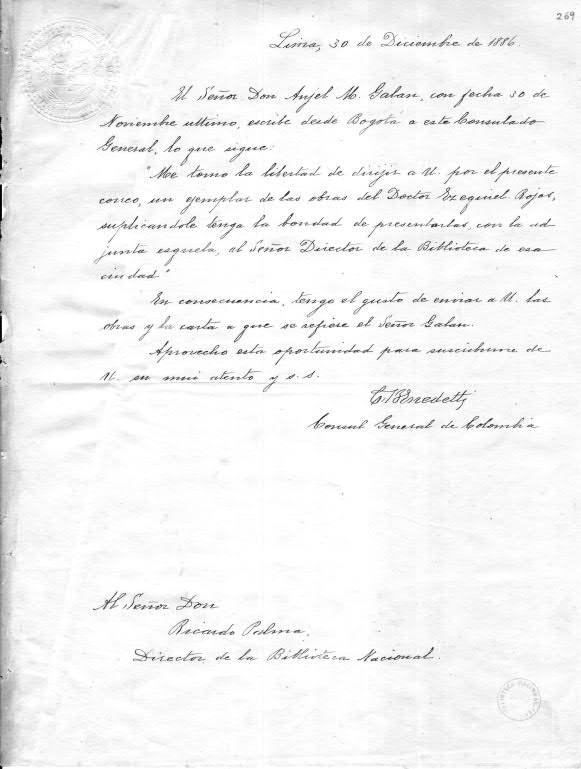 269
Lima, 30 de Diciembre de 1886.
El Señor Don Anjel M. Galan, con fecha 30 de
Noviembre ultimo, escribe desde Bogotá a este Consulado
General, lo que sigue:
"Me tomo la libertad de dirijir a U. por el presente
correo, un ejemplar de las obras del Doctor Ezequiel Rojas,
suplicandole tenga la bondad de presentarlas, con la ad-
junta esquela, al Señor Director de la Biblioteca de esa
ciudad"
En consecuencia, tengo el gusto de enviar a U. las
obras y la carta a que se refiere el Señor Galan.
Aprovecho esta oportunidad para suscribirme de
U. su mui atento y s. s.
Benedetti
Consul General de Colombia
Al Señor Don
Ricardo Palma,
Director de la Biblioteca Nacional.